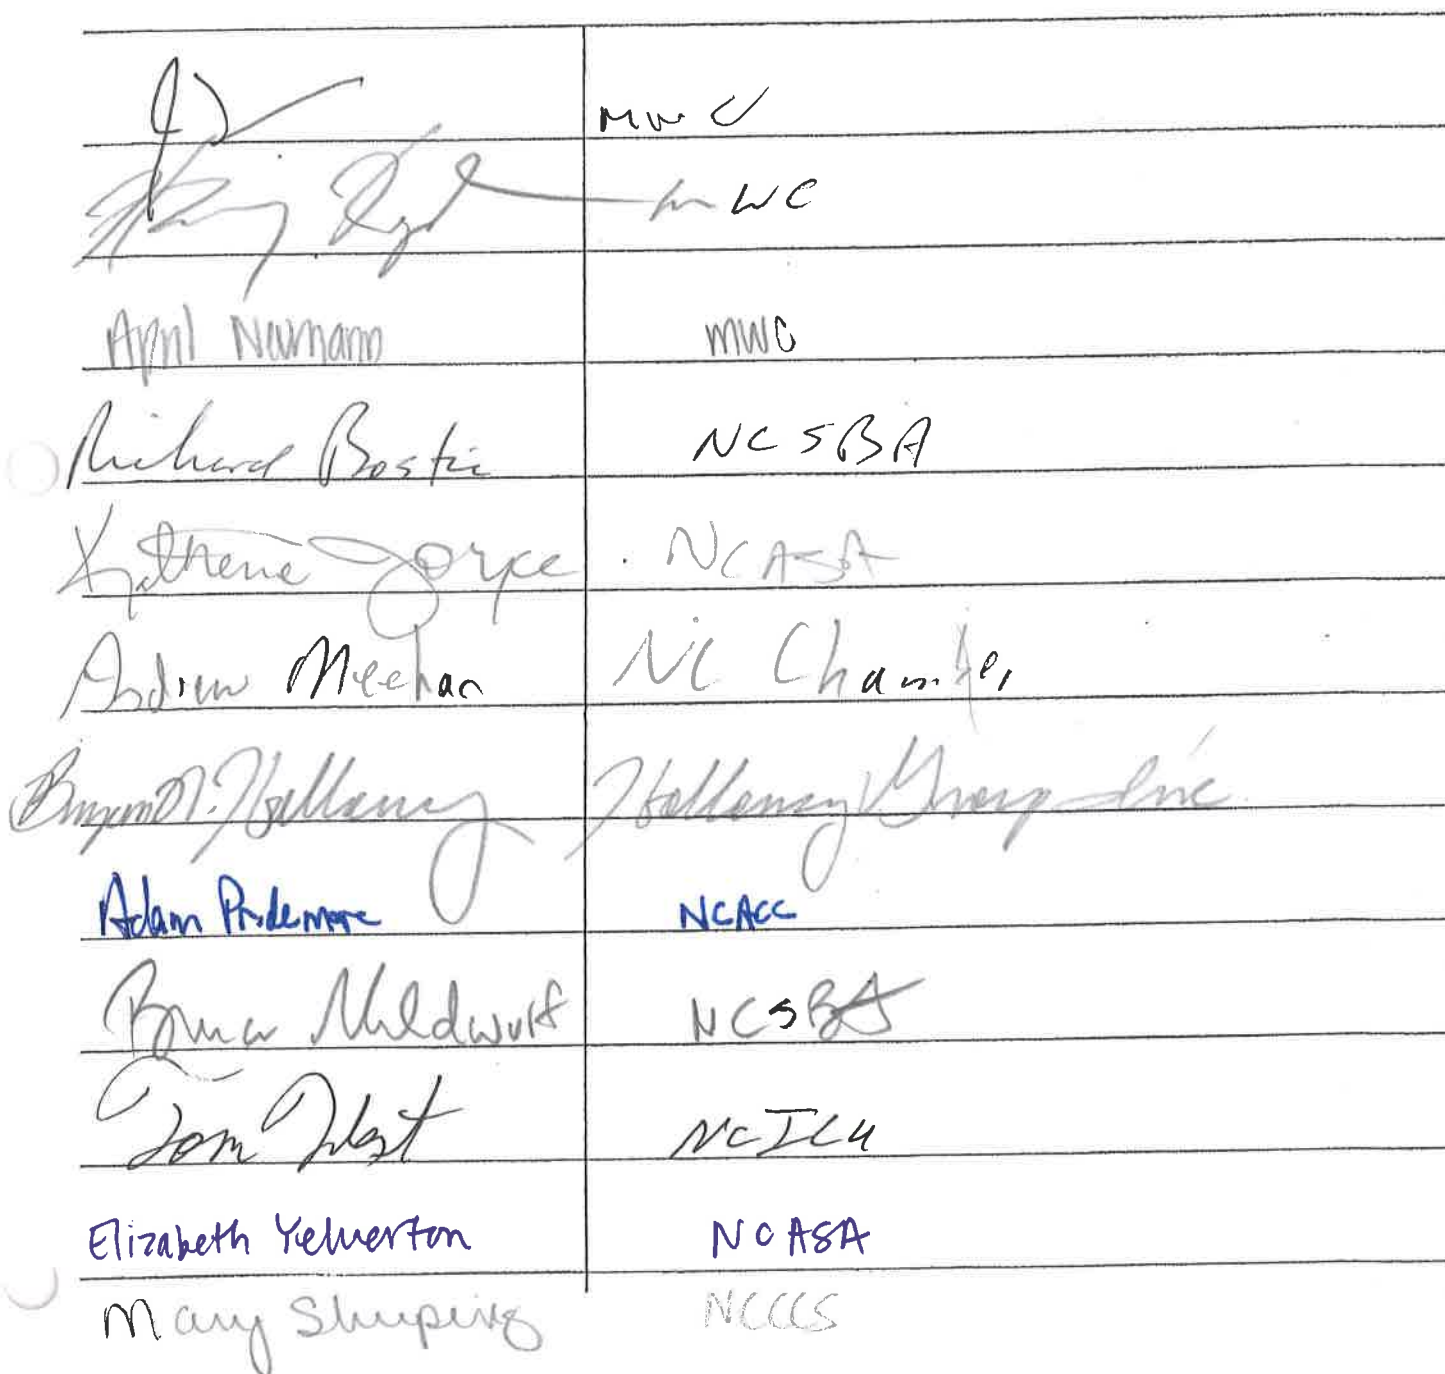 MWC
MWC
April Neumann MWC
Richard Bostic NCSBA
Katherine Joyce NCASA
Andrew Meehan NC Chamber
Bryan Holloway Holloway Group Inc
Adam Pridemore NCACC
Bruce Mildwurf NCSBA
Tom West NCICU
Elizabeth Yelverton NCASA
Mary Shuping NCCCS